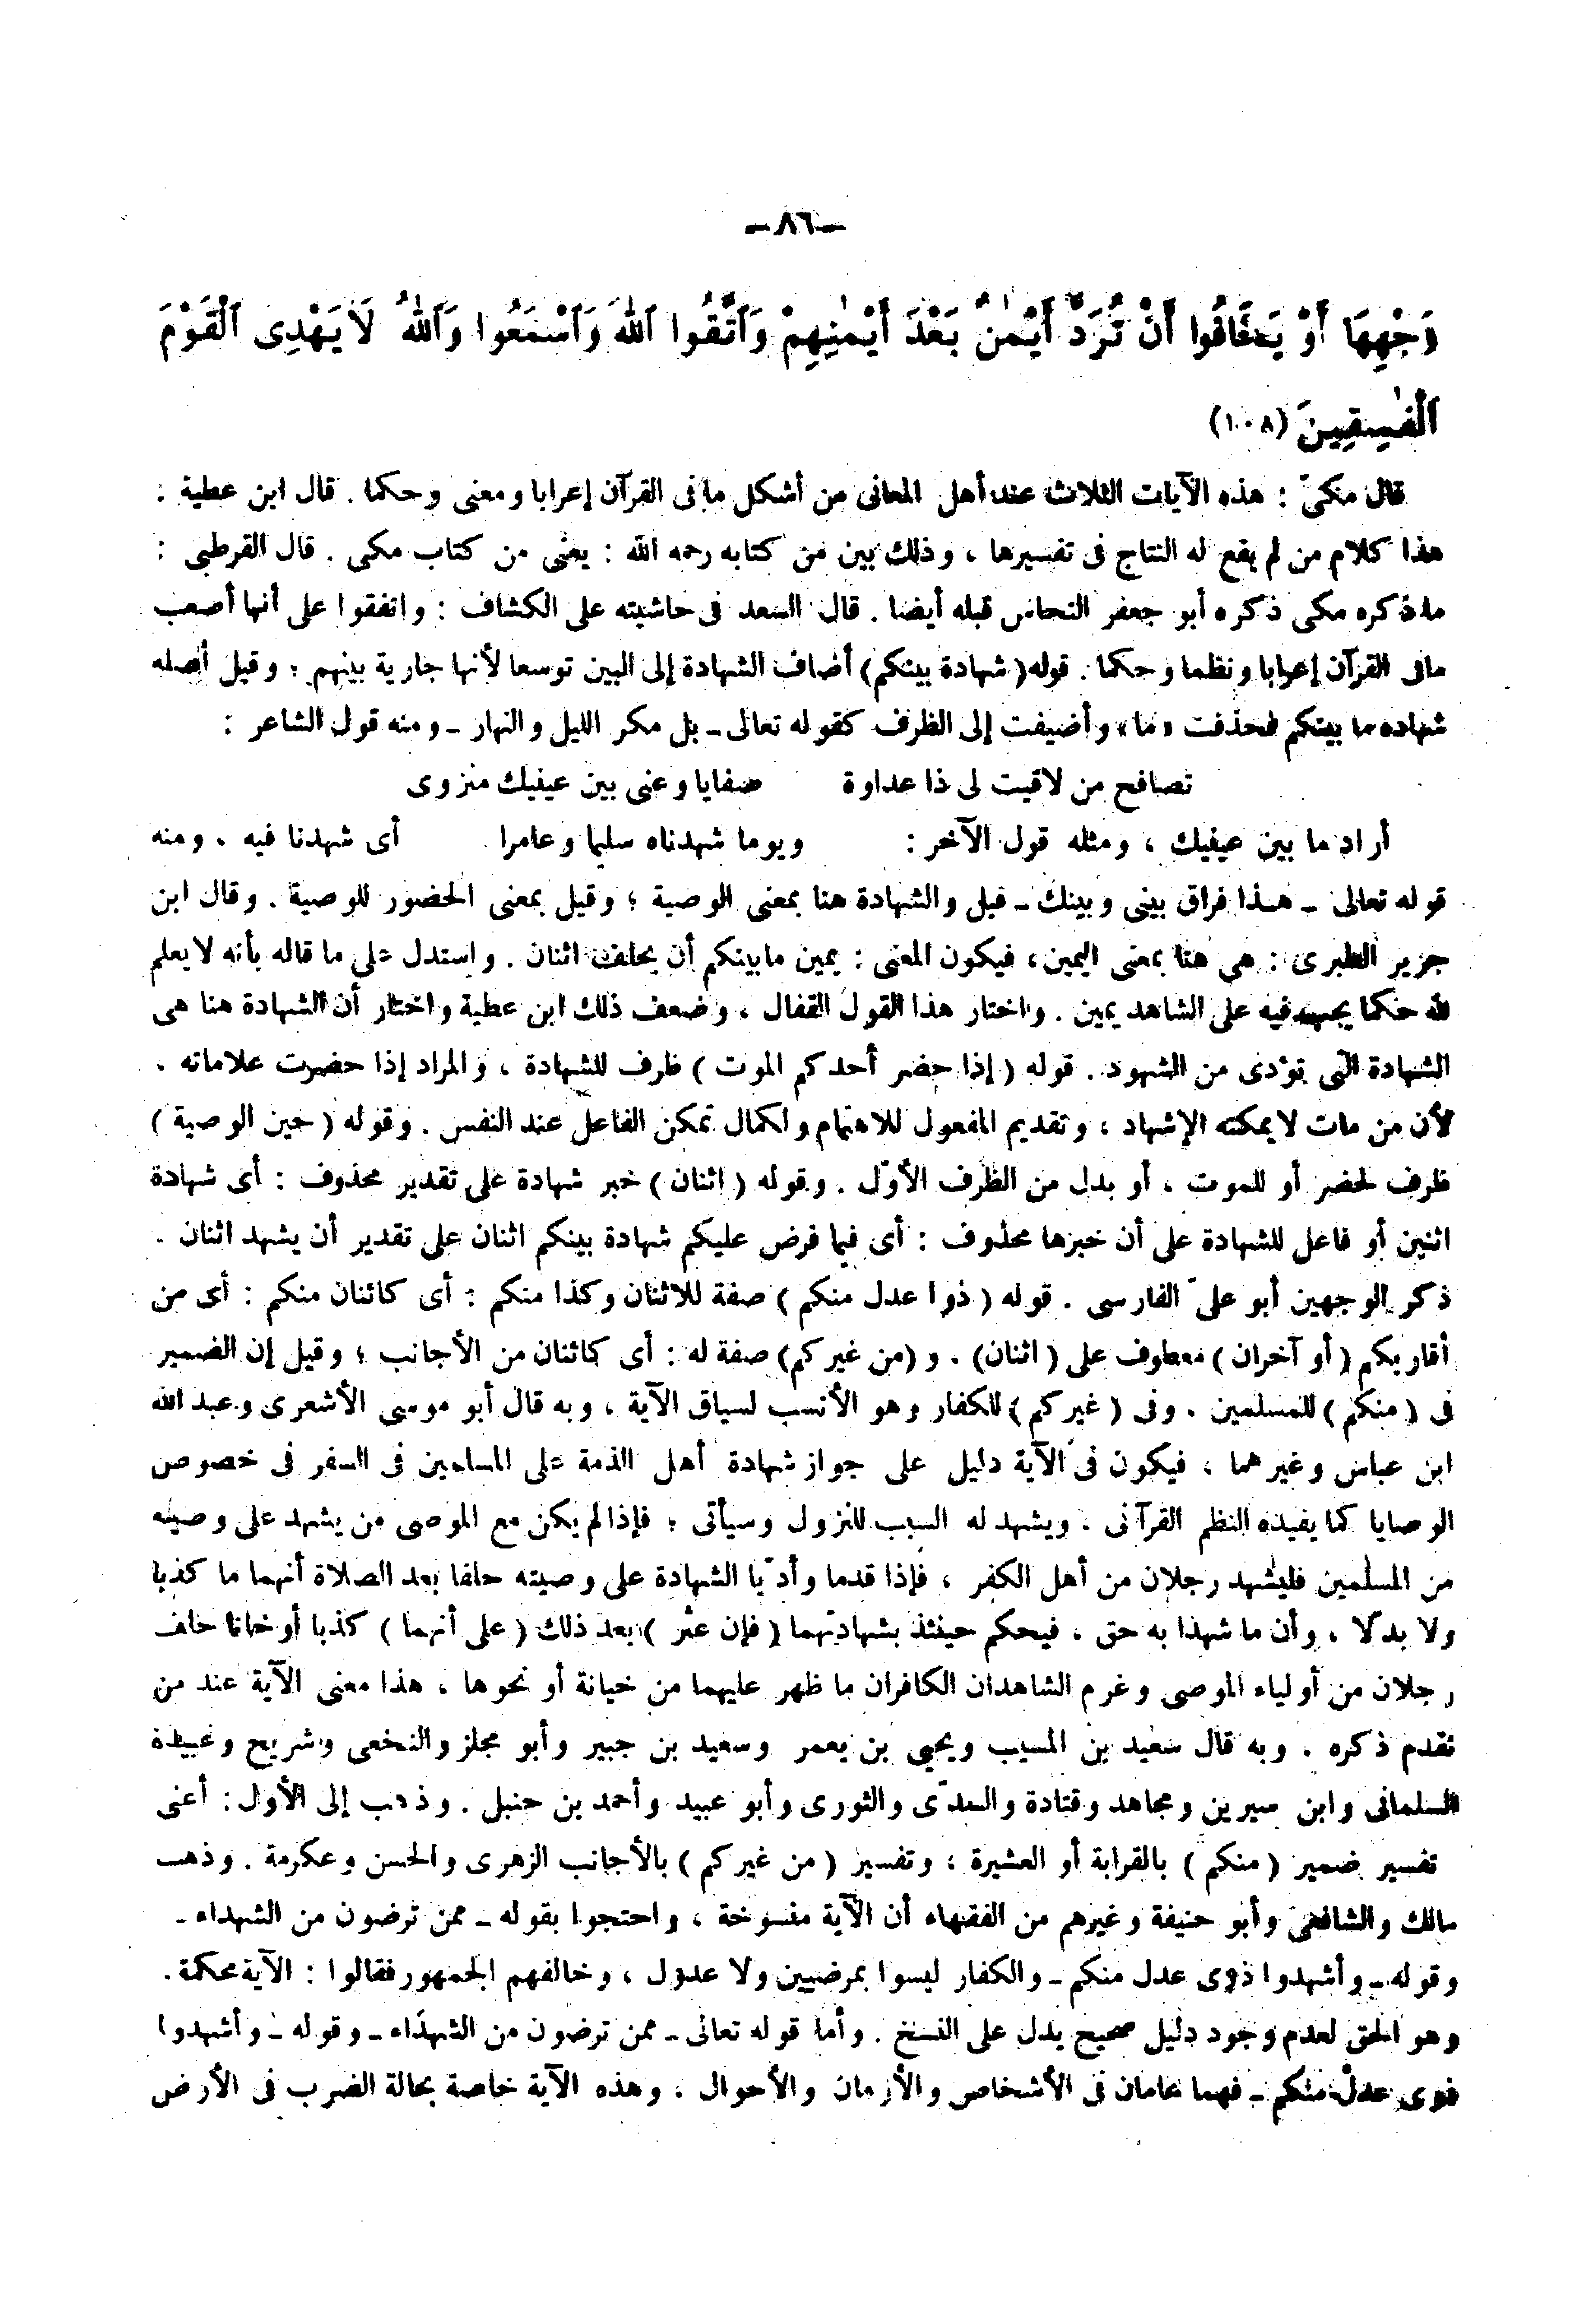 -٨٦-
وَجْهِهَا أَوْ يَخَافُوا أَنْ تُرَدَّ أَيْمَٰنٌ بَعْدَ أَيْمَٰنِهِمْ وَٱتَّقُوا ٱللَّهَ وَٱسْمَعُوا وَٱللَّهُ لَا يَهْدِى ٱلْقَوْمَ
ٱلْفَٰسِقِينَ (١٠٨)
قال مكىّ : هذه الآيات الثلاث عند أهل المعانى من أشكل مافى القرآن إعرابا ومعنى وحكما . قال ابن عطية :
هذا كلام من لم يقع له النتاج فى تفسيرها ، وذلك بين من كتابه رحمه الله : يعنى من كتاب مكى . قال القرطبى :
ماذكره مكى ذكره أبو جعفر النحاس قبله أيضا . قال السعد فى حاشيته على الكشاف : واتفقوا على أنها أصعب
مافى القرآن إعرابا ونظما وحكما . قوله (شهادة بينكم) أضاف الشهادة إلى البين توسعا لأنها جارية بينهم ؛ وقيل أصله
شهاده ما بينكم فحذفت «ما» وأضيفت إلى الظرف كقوله تعالى ـ بل مكر الليل والنهار ـ ومنه قول الشاعر :
تصافح من لاقيت لى ذا عداوة صفايا وعنى بين عينيك منزوى
أراد ما بين عينيك ، ومثله قول الآخر : ويوما شهدناه سليما وعامرا أى شهدنا فيه ، ومنه
قوله تعالى ـ هـذا فراق بينى وبينك ـ قيل والشهادة هنا بمعنى الوصية ؛ وقيل بمعنى الحضور للوصية . وقال ابن
جرير الطبرى : هى هنا بمعنى اليمين ، فيكون المعنى : يمين مابينكم أن يحلف اثنان . واستدل على ما قاله بأنه لايعلم
لله حكما يجب فيه على الشاهد يمين . واختار هذا القول القفال ، وضعف ذلك ابن عطية واختار أن الشهادة هنا هى
الشهادة التى تؤدى من الشهود . قوله ( إذا حضر أحدكم الموت ) ظرف للشهادة ، والمراد إذا حضرت علاماته ،
لأن من مات لايمكنه الإشهاد ، وتقديم المفعول للاهتمام ولكمال تمكن الفاعل عند النفس . وقوله ( حين الوصية )
ظرف لحضر أو للموت ، أو بدل من الظرف الأوّل . وقوله ( اثنان ) خبر شهادة على تقدير محذوف : أى شهادة
اثنين أو فاعل للشهادة على أن خبرها محذوف : أى فيما فرض عليكم شهادة بينكم اثنان على تقدير أن يشهد اثنان .
ذكر الوجهين أبو علىّ الفارسى . قوله ( ذوا عدل منكم ) صفة للاثنان وكذا منكم : أى كائنان منكم : أى من
أقاربكم ( أو آخران ) معطوف على ( اثنان ) . و (من غيركم) صفة له : أى كائنان من الأجانب ؛ وقيل إن الضمير
فى ( منكم ) للمسلمين . وفى ( غيركم ) للكفار وهو الأنسب لسياق الآية ، وبه قال أبو موسى الأشعرى وعبد الله
ابن عباس وغيرهما ، فيكون فى الآية دليل على جواز شهادة أهل الذمة على المسلمين فى السفر فى خصوص
الوصايا كما يفيده النظم القرآنى ، ويشهد له السبب للنزول وسيأتى ؛ فإذا لم يكن مع الموصى من يشهد على وصيته
من المسلمين فليشهد رجلان من أهل الكفر ، فإذا قدما وأدّيا الشهادة على وصيته حلفا بعد الصلاة أنهما ما كذبا
ولا بدّلا ، وأن ما شهدا به حق ، فيحكم حينئذ بشهادتهما ( فإن عثر ) بعد ذلك ( على أنهما ) كذبا أو خانا حلف
رجلان من أولياء الموصى وغرم الشاهدان الكافران ما ظهر عليهما من خيانة أو نحوها ، هذا معنى الآية عند من
تقدم ذكره . وبه قال سعيد بن المسيب ويحيى بن يعمر وسعيد بن جبير وأبو مجلز والنخعى وشريح وعبيدة
السلمانى وابن سيرين ومجاهد وقتادة والسدّى والثورى وأبو عبيد وأحمد بن حنبل . وذهب إلى الأول : أعنى
تفسير ضمير ( منكم ) بالقرابة أو العشيرة ، وتفسير ( من غيركم ) بالأجانب الزهرى والحسن وعكرمة . وذهب
مالك والشافعى وأبو حنيفة وغيرهم من الفقهاء أن الآية منسوخة ، واحتجوا بقوله ـ ممن ترضون من الشهداء ـ
وقوله ـ وأشهدوا ذوى عدل منكم ـ والكفار ليسوا بمرضيين ولا عدول ، وخالفهم الجمهور فقالوا : الآية محكمة .
وهو الحق لعدم وجود دليل صحيح يدل على النسخ . وأما قوله تعالى ـ ممن ترضون من الشهداء ـ وقوله ـ وأشهدوا
ذوى عدل منكم ـ فهما عامان فى الأشخاص والأزمان والأحوال ، وهذه الآية خاصة بحالة الضرب فى الأرض